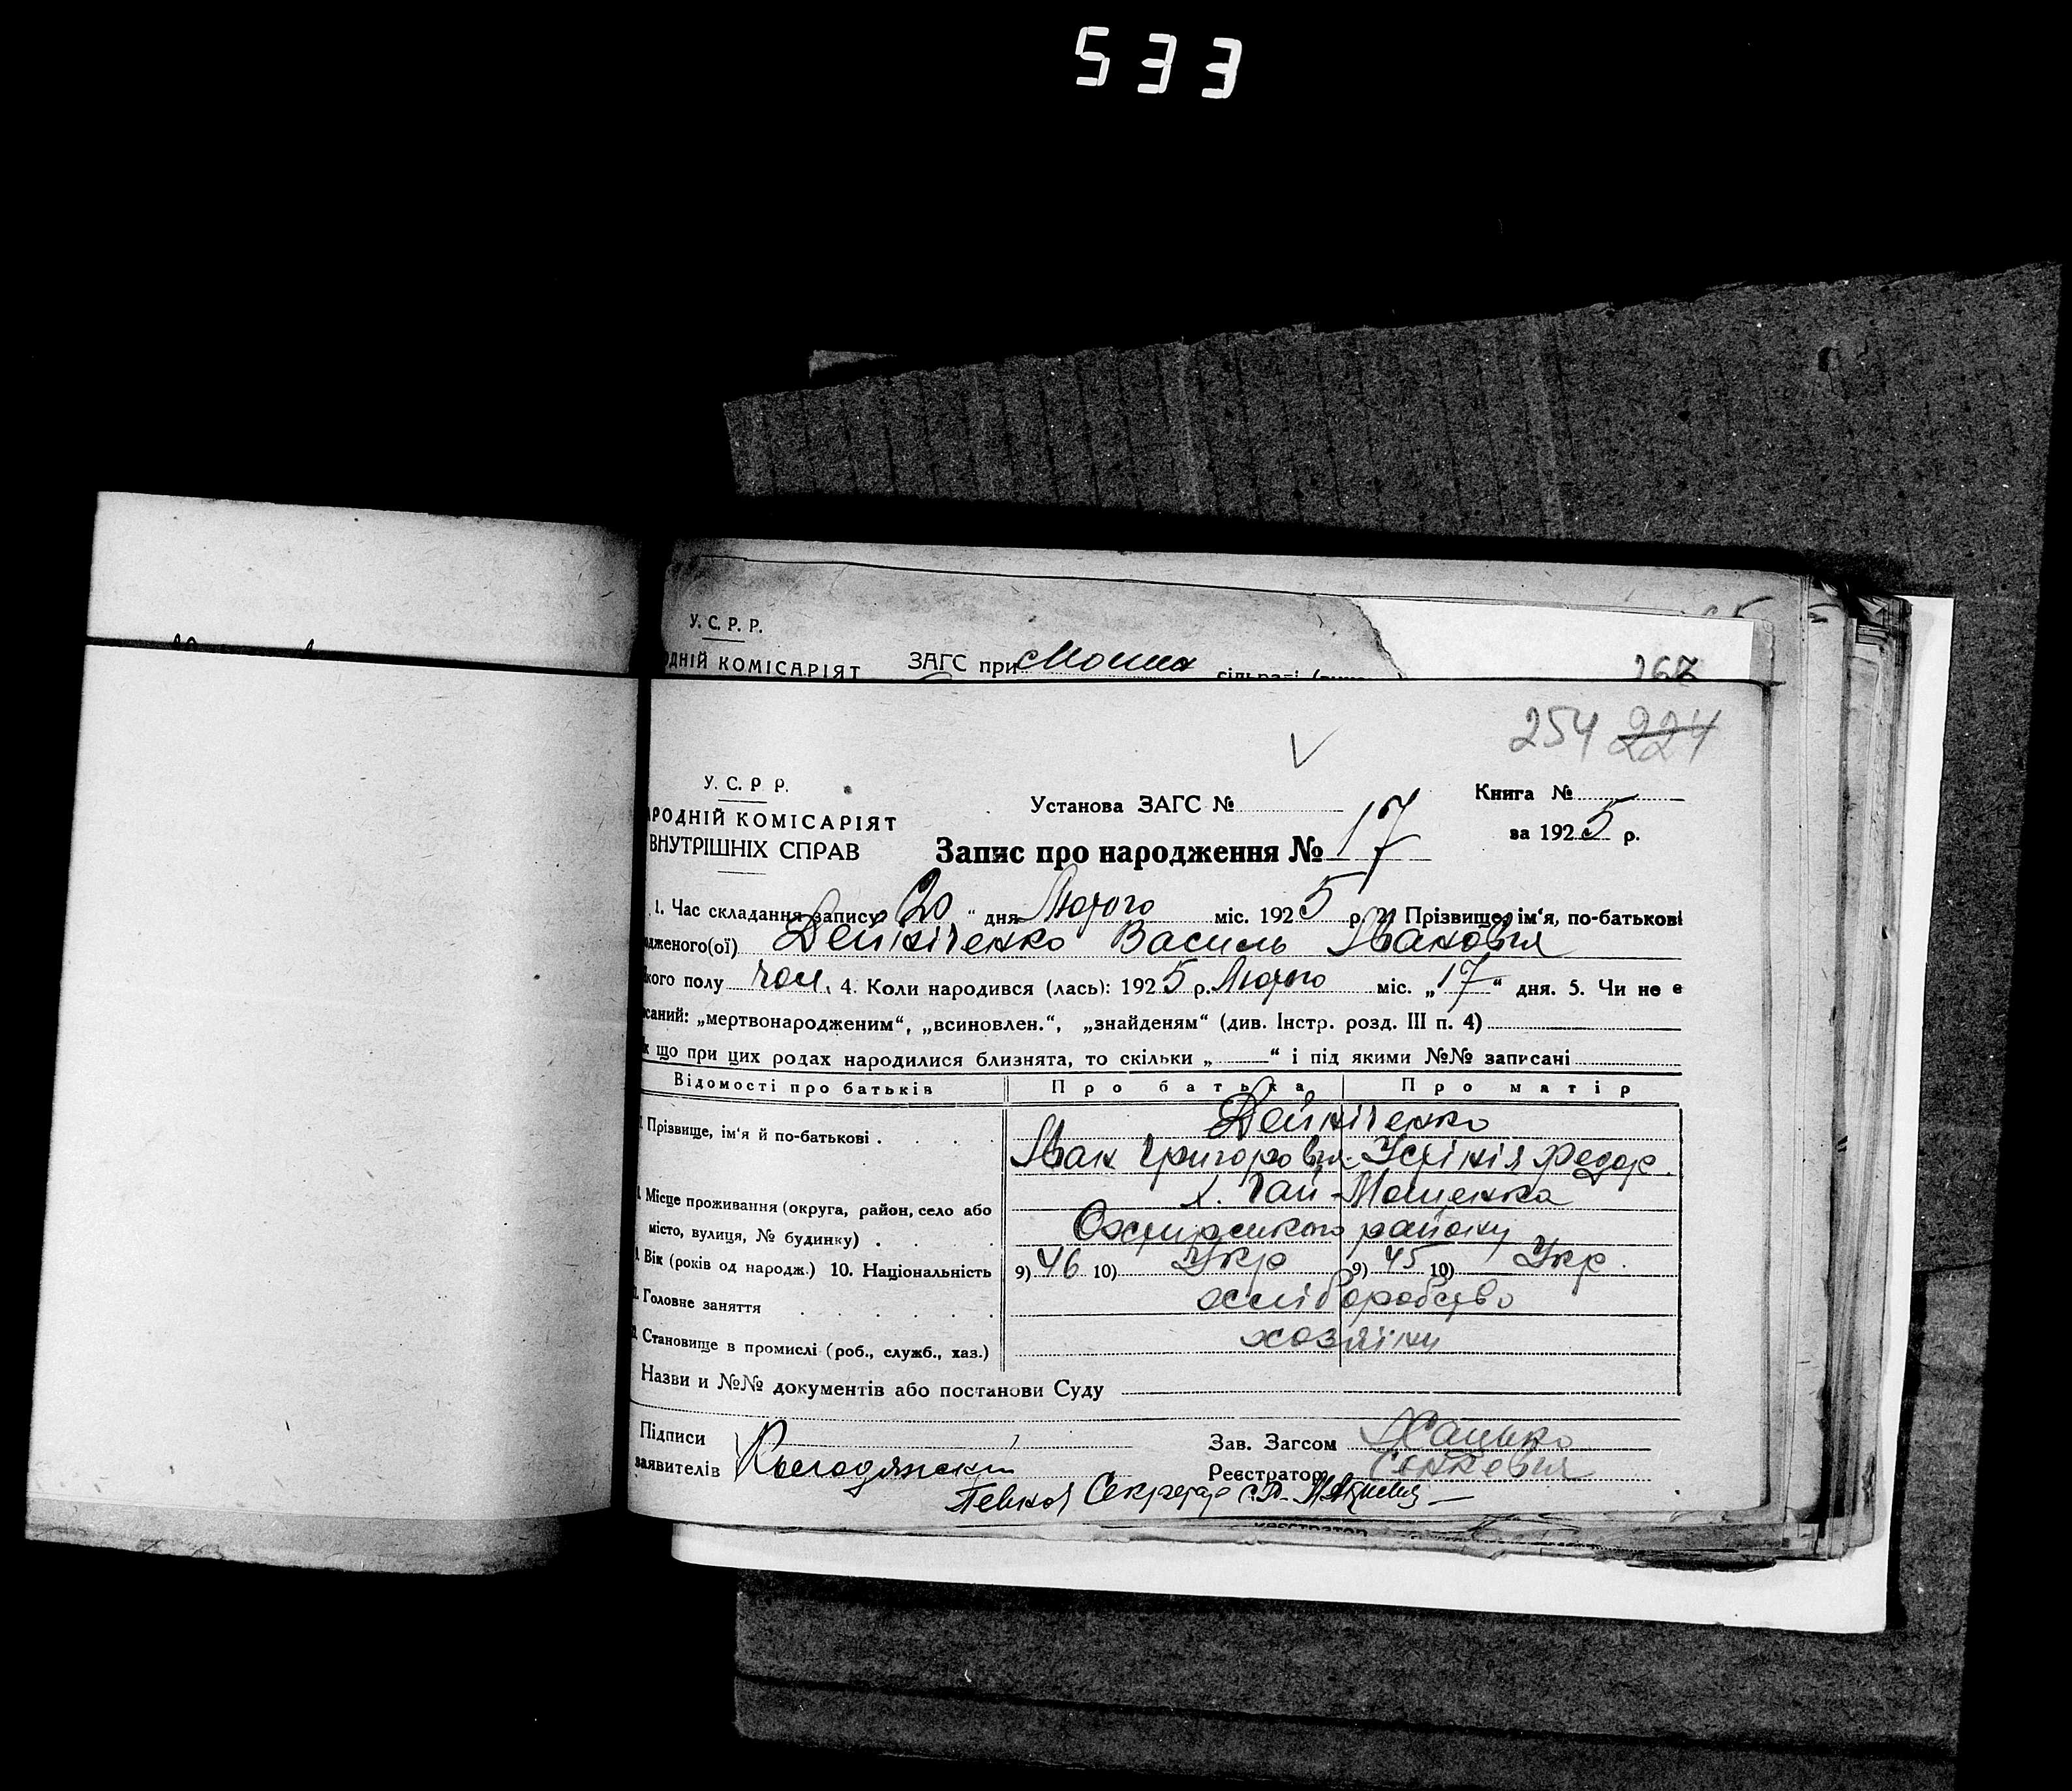 533
У. С. Р. Р.
ОДНІЙ КОМІСАРІЯТ ЗАГС при
267
254 224
У. С. Р Р.
Установа ЗАГС № Книга №
АРОДНІЙ КОМІСАРІЯТ
за 1925 р.
ВНУТРІШНІХ СПРАВ
Запис про народження № 17
1. Час складання запису „20“ дня Лютого міс. 1925 р. 2. Прізвище, ім‘я, по-батькові
одженого(ої) Дейніченко Василь Іванович
кого полу чол. 4. Коли народився (лась): 1925 р. Лютого міс. „17“ дня. 5. Чи не є
саний: „мертвонародженим“, „всиновлен.“, „знайденям“ (див. Інстр. розд. III п. 4)
к що при цих родах народилися близнята, то скільки „ “ і під якими №№ записані
Відомості про батьків Про батька Про матір
Прізвище, ім‘я й по-батькові . . . . Дейніченко
Іван Григорович Устінія Федор.
Місце проживання (округа, район, село або х. Гай-Мошенка
місто, вулиця, № будинку) . . . Охтирського району
Вік (років од народж.) 10. Національність 9) 46 10) Укр 9) 45 10) Укр.
Головне заняття . . . . . хліборобство
Становище в промислі (роб., служб., хаз.) хозяїни
Назви и №№ документів або постанови Суду
Підписи Зав. Загсом
заявителів Реєстратор
Секретар